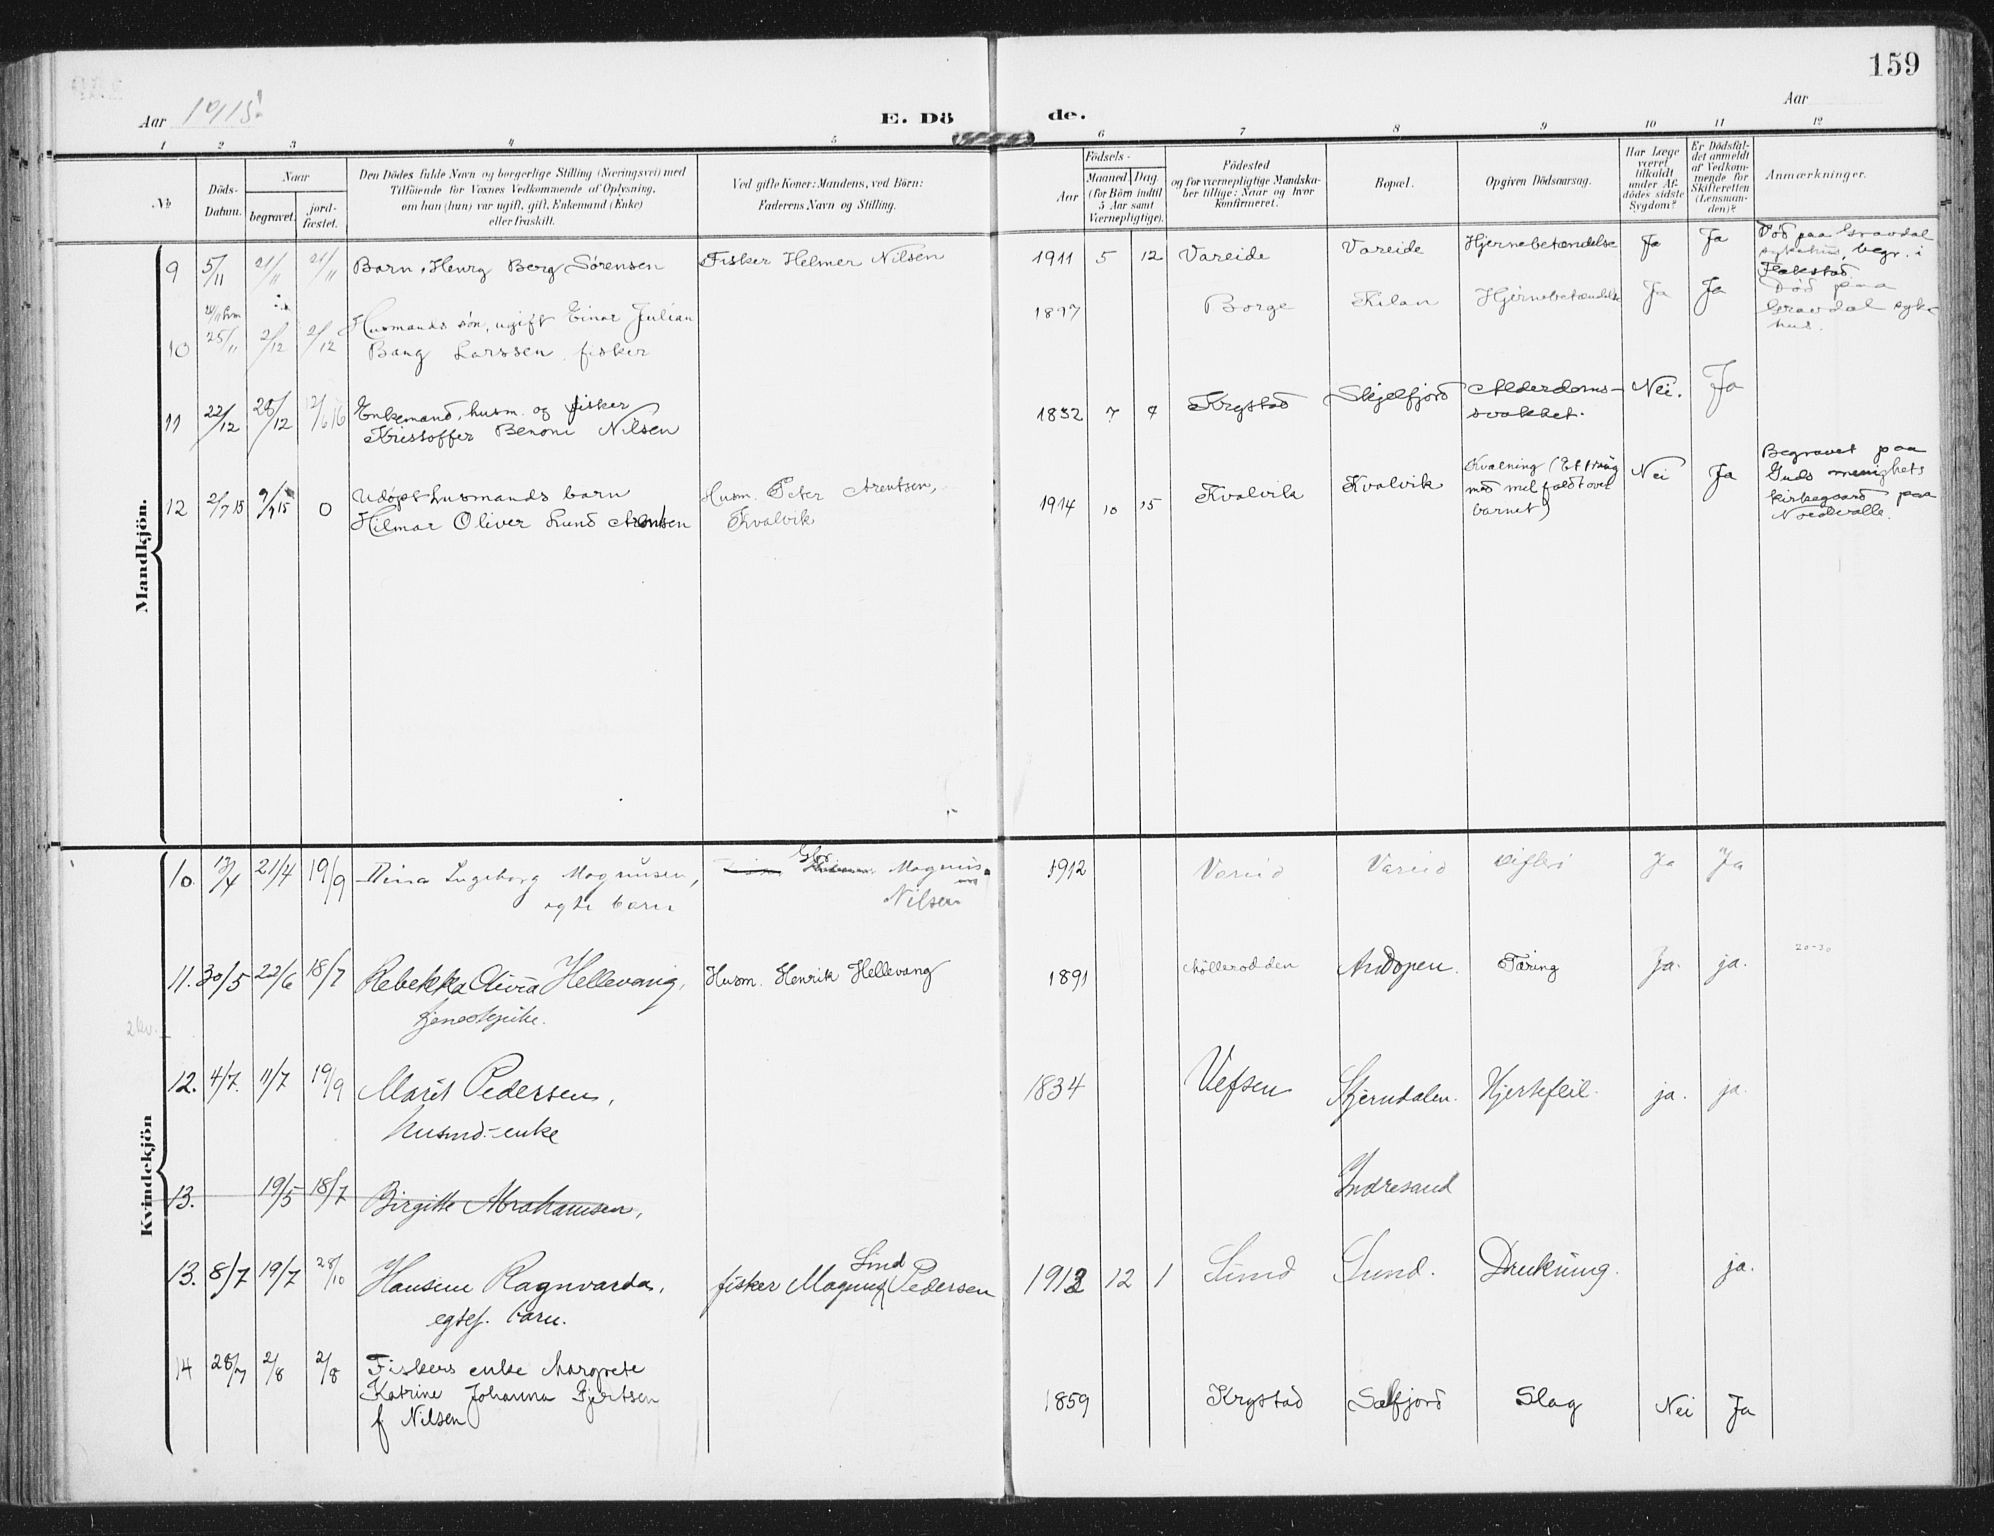 159
Aar 1915.
E. Dö
de.
Aar
1 2 3 4 5 6 7 8 9 10 11 12
№
Döds-Datum.
Naar
begravet.
jord-fæstet.
Den Dödes fulde Navn og borgerlige Stilling (Næringsvei) med
Tilföiende for Voxnes Vedkommende af Oplysning,
om han (hun) var ugift, gift, Enkemand (Enke)
eller fraskilt.
Ved gifte Koner: Mandens, ved Börn:
Faderens Navn og Stilling.
Födsels-
Aar
Maaned. Dag.
(for Börn indtil
5 Aar samt
Værnepligtige).
Födested
og for værnepligtige Mandska-
ber tillige: Naar og hvor
Konfirmeret.
Bopæl.
Opgiven Dödsaarsag.
Har Læge
været
tilkaldt
under Af-
dödes sidste
Sygdom?
Er Dödsfal-
det anmeldt
af Vedkom-
mende for
Skifteretten
(Lensman-
den)?
Anmærkninger.
Mandkjön.
9 5/11 21/11 21/11 Barn, Henry Berg Sørensen Fisker Helmer Nilsen 1911 5 12 Vareide Vareide Hjernebetændelse Ja Ja Død paa Gravdal
sykehus, begr. i
Flakstad.
10 25/11 2/12 2/12 Husmands søn, ugift Einar Julian
Bang Larssen, fisker 1897 Borge Kilan Hjernebetændelse Ja Ja Død paa
Gravdal syke
hus.
11 22/12 28/12 2/6 16 Enkemand, husm. og fisker
Kristoffer Benoni Nilsen 1832 7 9 Krystad Skjelfjord Alderdoms-
svakhet. Nei. Ja
12 2/7 15 9/7 15 0 Udøpt husmands barn
Hilmar Oliver Lund Arentsen Husm. Peter Arentsen,
Kvalvik 1914 10 15 Kvalvik Kvalvik Kvælning (Et traug
med mel faldt over
barnet) Nei Ja Begravet paa
Guds menighets
kirkegaard paa
Kvindekjön
10. 13/4 21/4 19/9 Dina Ingeborg Magnusen,
egte barn Magnus
Nilsen 1912 Vareid Vareid Ja Ja
11. 30/5 22/6 18/7 Rebekka Olivia Hellevang,
tjenestepike. Husm. Henrik Hellevang 1891 Møllerodden Andopen. Tæring Ja. ja. 20-30
12. 4/7. 11/7 19/9 Marit Pedersen,
husmd.-enke 1834 Vefsen Stjerndalen. Hjertefeil. ja. ja.
13. 19/5 18/7 Birgitte Abrahamsen, Indresand
13. 8/7 19/7 28/10 Hansine Ragnvarda,
egtef. barn. fisker Magnus Sund Pedersen 1913 12 1 Sund Sund. Drukning. ja.
14 28/7 2/8 2/8 Fiskers enke Margrete
Katrine Johanna Gjertsen
f Nilsen 1859 Krystad Selfjord Slag Nei Ja